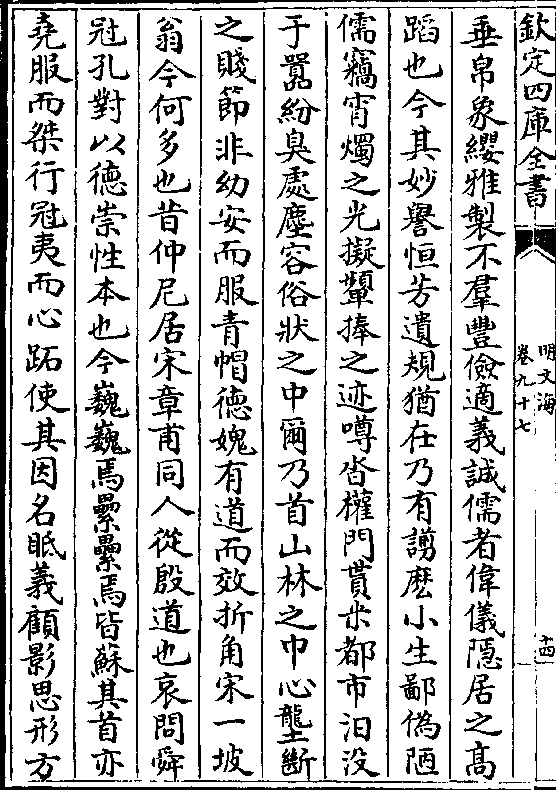 欽定四庫全書
明文海
卷九十七
十四
垂帛象纓雅製不羣豐儉適義誠儒者偉儀隠居之髙
蹈也今其妙譽恒芳遺規猶在乃有謭麽小生鄙偽陋
儒竊宵燭之光擬顰捧之迹噂沓權門貫米都市汩没
于囂紛臭處塵容俗狀之中爾乃首山林之巾心壟斷
之賤節非幼安而服青帽徳媿有道而效折角宋一坡
翁今何多也昔仲尼居宋章甫同人從殷道也哀問舜
冠孔對以徳崇性本也今巍巍焉纍纍焉皆蘇其首亦
堯服而桀行冠夷而心跖使其因名眡義顧影思形方